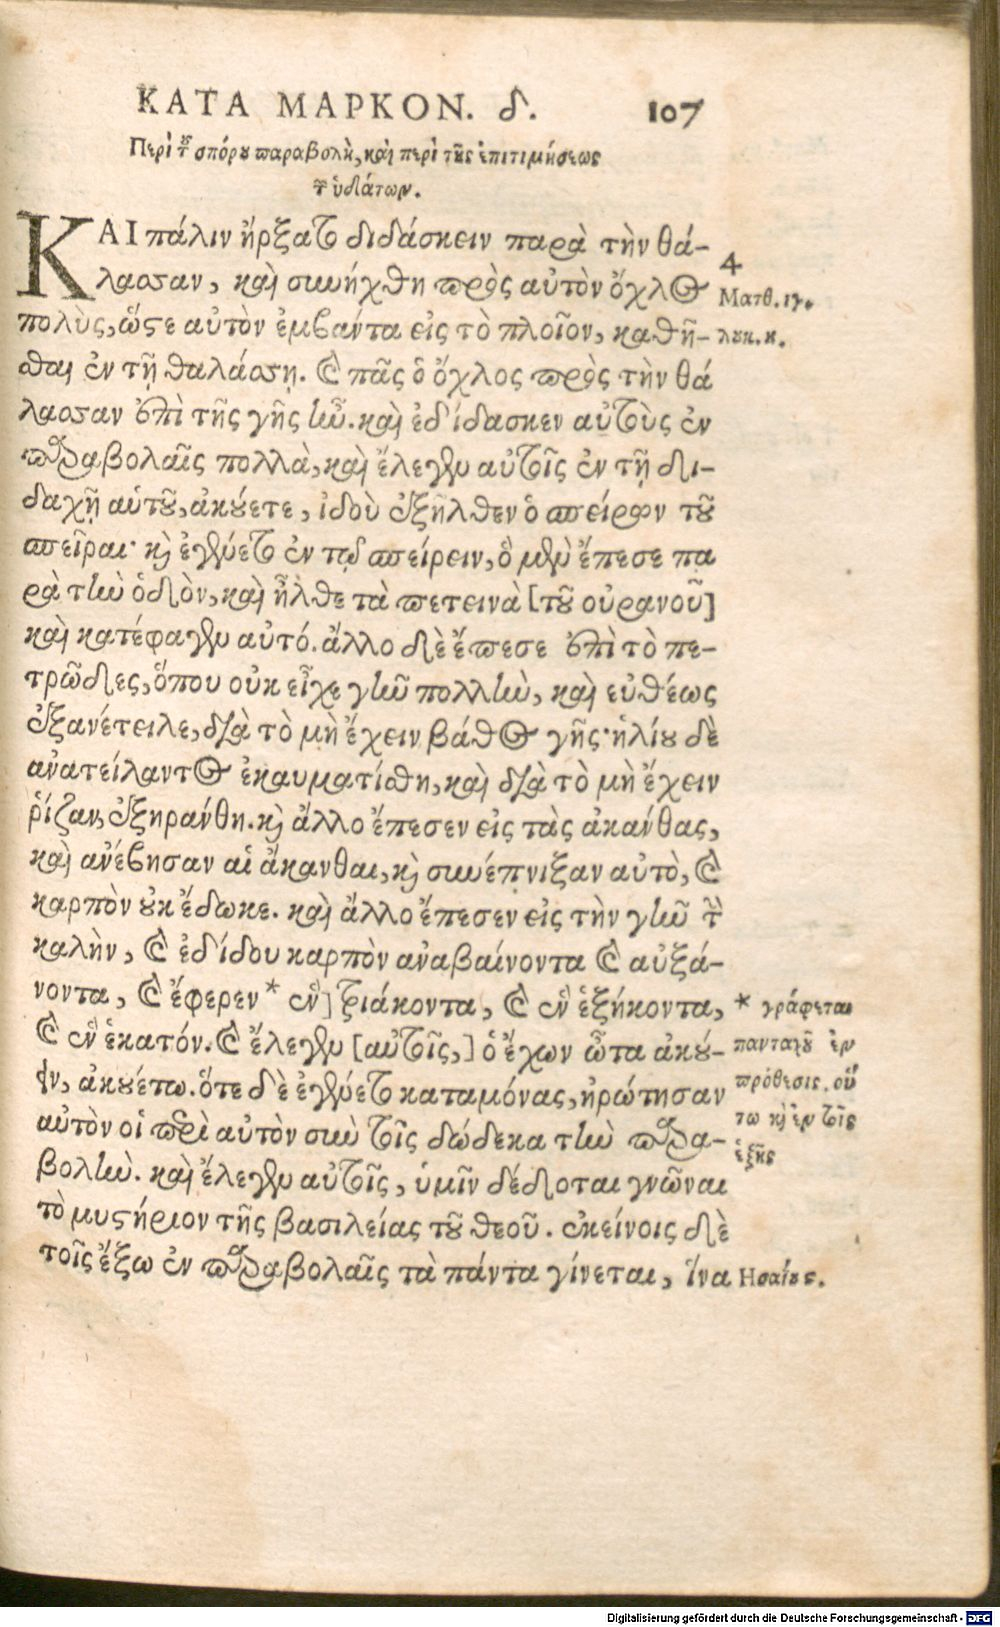 ΚΑΤΑ ΜΑΡΚΟΝ. δ. 107
Περὶ τοῦ σπόρου παραβολὴ, καὶ περὶ τῆς ἐπιτιμήσεως
τῶν ὑδάτων.
ΚΑΙ πάλιν ἤρξατο διδάσκειν παρὰ τὴν θά-
λασσαν, καὶ συνήχθη πρὸς αὐτὸν ὄχλος
πολὺς, ὥστε αὐτὸν ἐμβάντα εἰς τὸ πλοῖον, καθῆ-
σθαι ἐν τῇ θαλάσσῃ. καὶ πᾶς ὁ ὄχλος πρὸς τὴν θά
λασσαν ἐπὶ τῆς γῆς ἦν. καὶ ἐδίδασκεν αὐτοὺς ἐν
παραβολαῖς πολλὰ, καὶ ἔλεγεν αὐτοῖς ἐν τῇ δι-
δαχῇ αὑτοῦ, ἀκούετε, ἰδοὺ ἐξῆλθεν ὁ σπείρων τοῦ
σπεῖραι· καὶ ἐγένετο ἐν τῷ σπείρειν, ὃ μὲν ἔπεσε πα
ρὰ τὴν ὁδὸν, καὶ ἦλθε τὰ πετεινὰ [τοῦ οὐρανοῦ]
καὶ κατέφαγεν αὐτό. ἄλλο δὲ ἔπεσε ἐπὶ τὸ πε-
τρῶδες, ὅπου οὐκ εἶχε γῆν πολλὴν, καὶ εὐθέως
ἐξανέτειλε, διὰ τὸ μὴ ἔχειν βάθος γῆς· ἡλίου δὲ
ἀνατείλαντος ἐκαυματίσθη, καὶ διὰ τὸ μὴ ἔχειν
ῥίζαν, ἐξηράνθη. καὶ ἄλλο ἔπεσεν εἰς τὰς ἀκάνθας,
καὶ ἀνέβησαν αἱ ἄκανθαι, καὶ συνέπνιξαν αὐτὸ, καὶ
καρπὸν οὐκ ἔδωκε. καὶ ἄλλο ἔπεσεν εἰς τὴν γῆν τὴν
καλὴν, καὶ ἐδίδου καρπὸν ἀναβαίνοντα καὶ αὐξά-
νοντα, καὶ ἔφερεν * ἓν] τριάκοντα, καὶ ἓν ἑξήκοντα,
καὶ ἓν ἑκατόν. καὶ ἔλεγεν [αὐτοῖς,] ὁ ἔχων ὦτα ἀκού-
ειν, ἀκουέτω. ὅτε δὲ ἐγένετο καταμόνας, ἠρώτησαν
αὐτὸν οἱ περὶ αὐτὸν σὺν τοῖς δώδεκα τὴν παρα-
βολὴν. καὶ ἔλεγεν αὐτοῖς, ὑμῖν δέδοται γνῶναι
τὸ μυστήριον τῆς βασιλείας τοῦ θεοῦ. ἐκείνοις δὲ
τοῖς ἔξω ἐν παραβολαῖς τὰ πάντα γίνεται, ἵνα
4
Ματθ. ιγ.
λουκ. η.
* γράφεται
πανταχοῦ ἐν
πρόθεσις. οὕ
τω καὶ ἐν τοῖς
ἑξῆς
Ησαΐου ϛ.
Digitalisierung gefördert durch die Deutsche Forschungsgemeinschaft - DFG